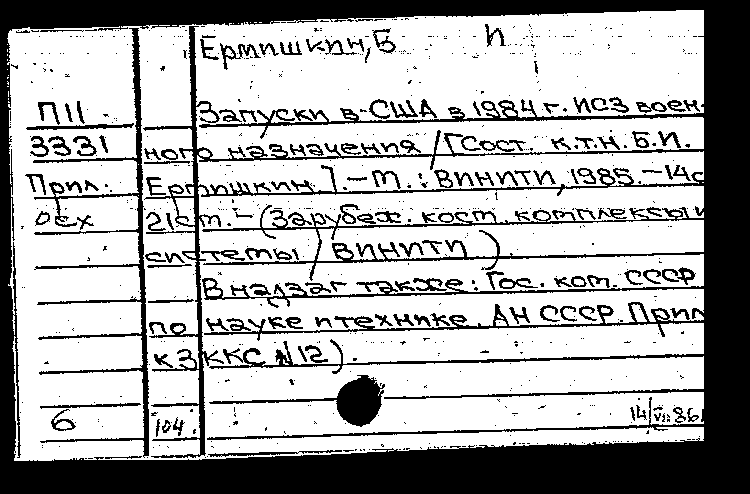 Ермишкин, Б И
П11 Запуски в США в 1984 г. ИСЗ воен-
3331 ного назначения / [Сост. к.т.н. Б.И.
Прил. Ермишкин]. – М. : ВИНИТИ, 1985. – 14с
осх 21 ст. – (Зарубеж. косм. комплексы и
системы / ВИНИТИ).
В надзаг также: Гос. ком. СССР
по науке и технике. АН СССР. Прил
к З ККС №12).
6 104. 14/VII 86